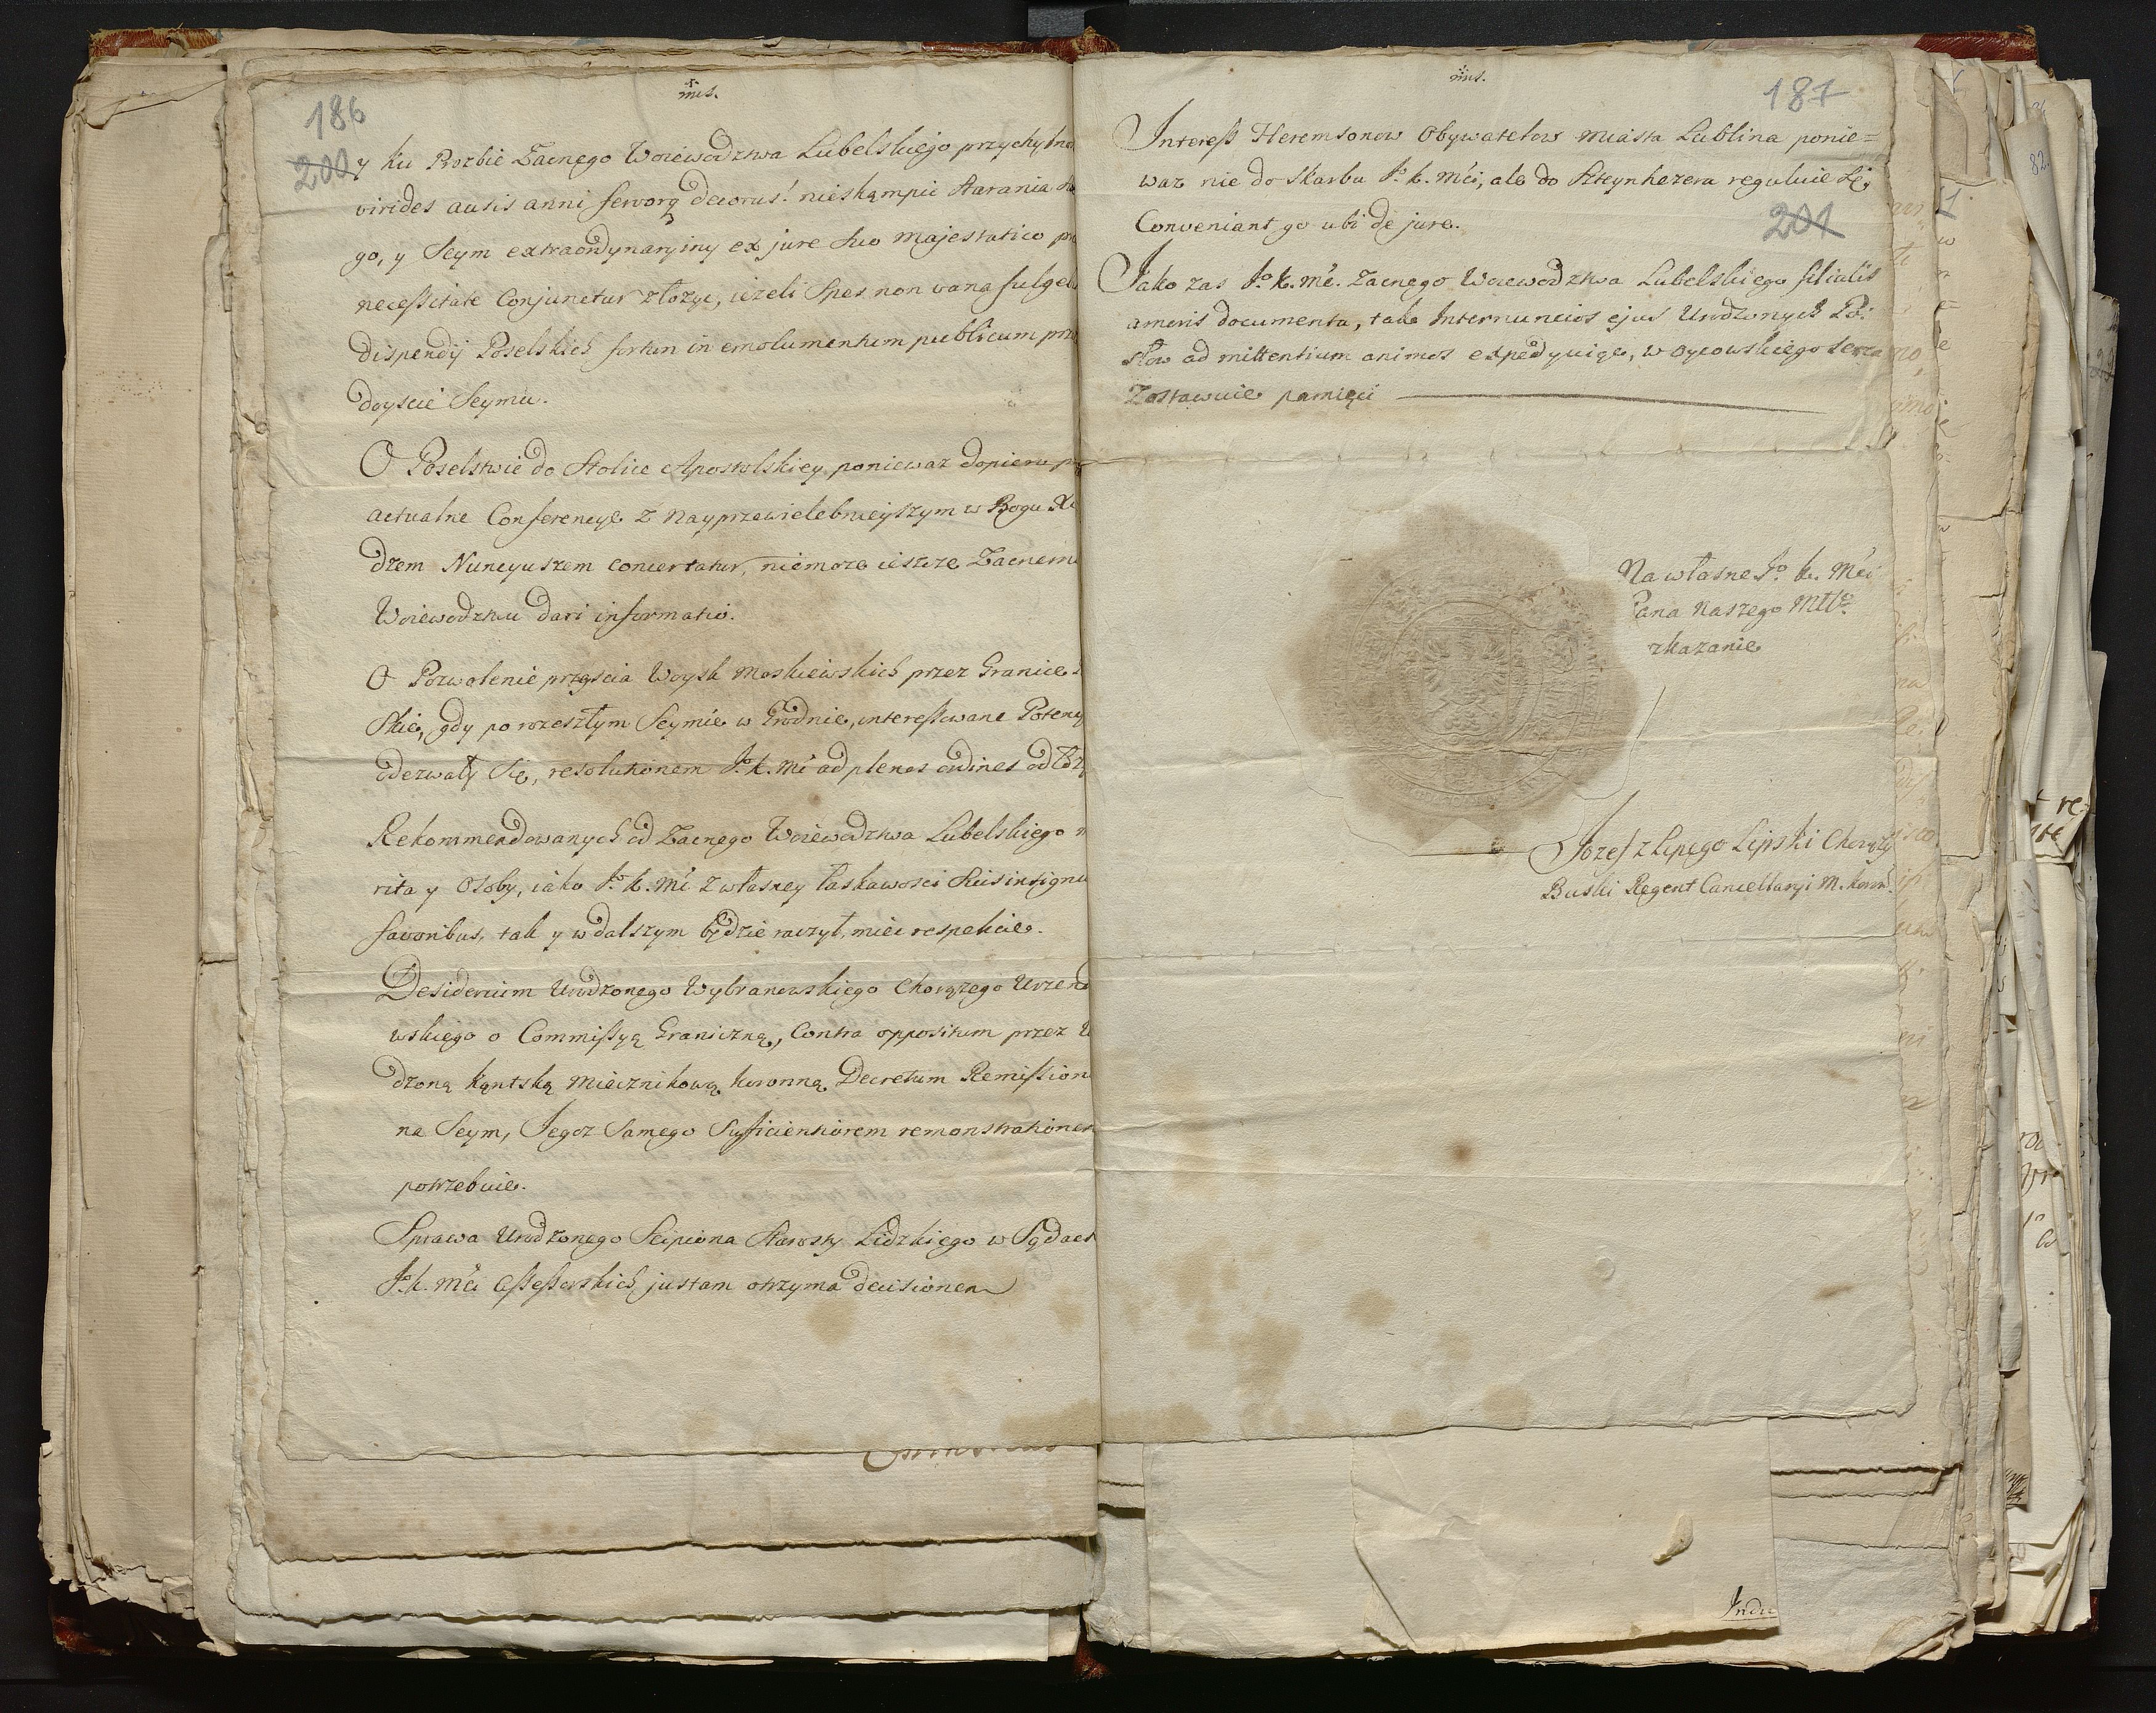 mls.
186
200
y ku Prozbie Zacnego Woiewodztwa Lubelskiego przychylne
virides ausis anni fervorq decorus! nieskąmpić starania
go, y Seym extraordynaryiny ex jure suo Majestatico
necessitate Conjunctur złożyc, ieżeli Spes non vana
dispendij Poselskich fortun in emolumentum publicum
doyscie Seymu.
O Poselstwie do Stolice Apostolskiey, poniewaz dopiero
actualne Conferencye z Nayprzewielebnieyszym w Bogu
dzem Nuncyuszem concertatur, niemoze ieszcze Zacnemu
Woiewodztwu dari informatio.
O Pozwolenie przyscia Woysk Moskiewskich przez Granice
skie, gdy po rozeszłym Seymie w Grodnie, interessowane
odezwały się, resolutionem J.o K. Mć ad plenos ordines
Rekommendowanych od Zacnego Woiewodztwa Lubelskiego
rita y Osoby, iako J.o K. Mć z własney łaskawosci Suis
favoribus, tak y w dalszym będzie raczył, mieć respekcie.
Desiderium Urodzonego Wybranowskiego Chorązego
wskiego o Commissyą Graniczną, Contra oppositum przez
dzoną Kąntską Miecznikową Koronną Decretum
na Seym, Jegoz Samego Sufficientiorem remonstrationem
potrzebuie.
Sprawa Urodzonego Scipiona Starosty Lidzkiego w Sądach
J.o K. Mći Assessorskich justam otrzyma decisionem
mls.
187
Interess Heremsonow Obywatelow Miasta Lublina ponie=
waz nie do Skarbu J.o K. Mći, ale do Szteynhezera reguluie się,
Conveniant go ubi de jure.
201
Jako zas J.o K. Mć. Zacnego Woiewodztwa Lubelskiego filialis
amoris documenta, tak Internuncios ejus Urodzonych Po:
słow ad mittentium animos expedyuiąc, w Oycowskiego serca
Zostawuie pamięci
Na własne J.o K. Mći
Pana Naszego Młł.o
zkazanie
Jozef z Lipego Lipski Chorąży
Buski Regent Cancellaryi M. Koron.